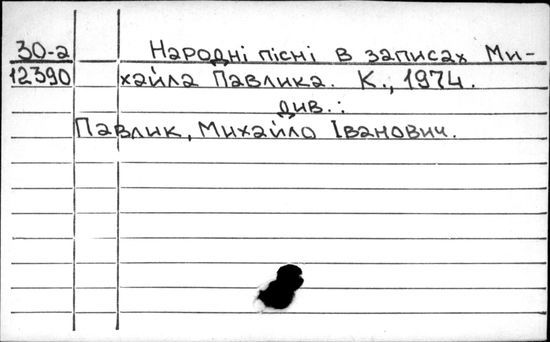 30-а Народні пісні в записах Ми-
12390 хайла Павлика. К., 1974.
див.:
Павлик, Михайло Іванович.